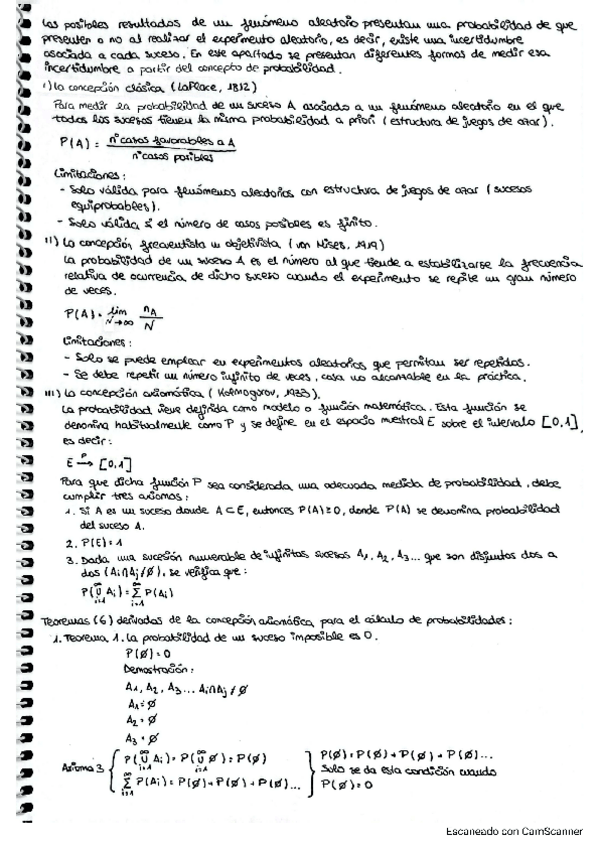 Los posibles resultados de un fenómeno aleatorio presentan una probabilidad de que
presenten o no al realizar el experimento aleatorio, es decir, existe una incertidumbre
asociada a cada suceso. En este apartado se presentan diferentes formas de medir esa
incertidumbre a partir del concepto de probabilidad.
I) La concepción clásica (LaPlace, 1812)
Para medir la probabilidad de un suceso A asociado a un fenómeno aleatorio en el que
todos los sucesos tienen la misma probabilidad a priori (estructura de juegos de azar).
P(A) = nº casos favorables a A
nº casos posibles
Limitaciones:
- Solo válida para fenómenos aleatorios con estructura de juegos de azar (sucesos
equiprobables).
- Solo válida si el número de casos posibles es finito.
II) La concepción frecuentista u objetivista (von Mises, 1919)
La probabilidad de un suceso A es el número al que tiende a estabilizarse la frecuencia
relativa de ocurrencia de dicho suceso cuando el experimento se repite un gran número
de veces.
P(A) = lim N→∞ nA/N
Limitaciones:
- Solo se puede emplear en experimentos aleatorios que permitan ser repetidos.
- Se debe repetir un número infinito de veces, cosa no alcanzable en la práctica.
III) La concepción axiomática (Kolmogorov, 1933).
La probabilidad viene definida como modelo o función matemática. Esta función se
denomina habitualmente como P y se define en el espacio muestral E sobre el intervalo [0,1],
es decir:
E →P [0,1]
Para que dicha función P sea considerada una adecuada medida de probabilidad, debe
cumplir tres axiomas:
1. Si A es un suceso donde A⊂E, entonces P(A)≥0, donde P(A) se denomina probabilidad
del suceso A.
2. P(E)=1
3. Dada una sucesión numerable de infinitos sucesos A1, A2, A3... que son disjuntos dos a
dos (Ai∩Aj≠∅), se verifica que:
P(∞∪i=1 Ai) = ∞Σi=1 P(Ai)
Teoremas (6) derivadas de la concepción axiomática para el cálculo de probabilidades:
1. Teorema 1. La probabilidad de un suceso imposible es 0.
P(∅)=0
Demostración:
A1, A2, A3... Ai∩Aj≠∅
A1=∅
A2=∅
A3=∅
Axioma 3 { P(∞∪i=1 Ai) = P(∞∪i=1 ∅) = P(∅)
∞Σi=1 P(Ai) = P(∅)+P(∅)+P(∅)...
} P(∅)=P(∅)+P(∅)+P(∅)...
Solo se da esta condición cuando
P(∅)=0
Escaneado con CamScanner